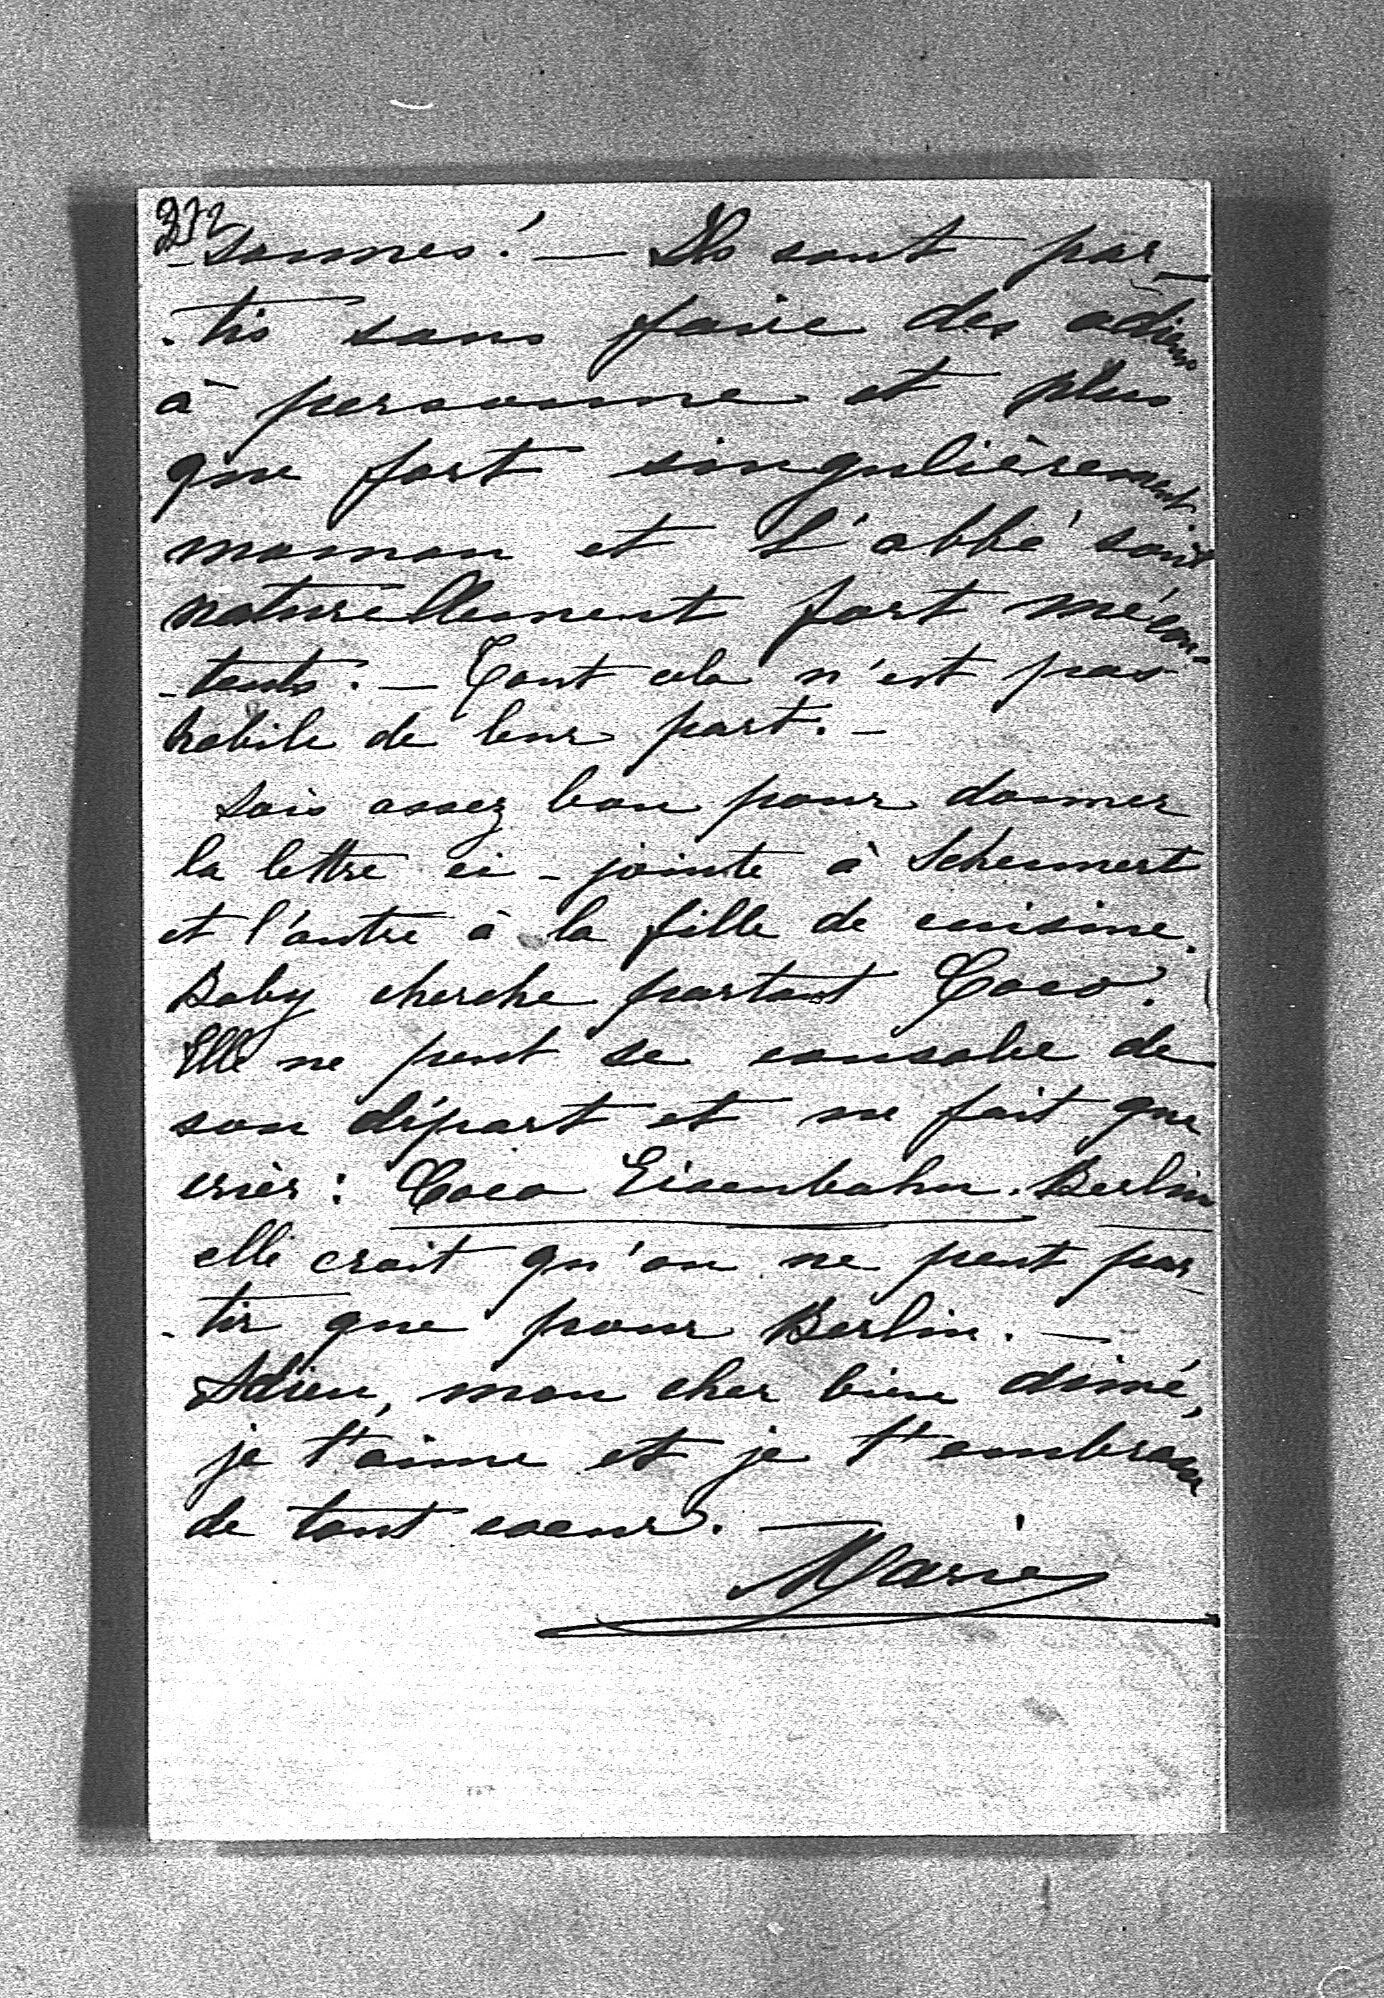 372
-sonnes! — Ils sont par-
-tis sans faire des adieux
à personne et plus
que fort singulièrement.
maman et L'abbé sont
naturellement fort mécon-
-tents. — Tout cela n'est pas
habile de leur part. —
Sois assez bon pour donner
la lettre ci-jointe à
et l'autre à la fille de cuisine.
Baby cherche partout Coco.
Elle ne peut se consoler de
son départ et ne fait que
crier: Coco Eisenbahn. Berlin
elle croit qu'on ne peut par
-tir que pour Berlin. —
Adieu, mon cher bien aimé,
je t'aime et je t'embrasse
de tout coeur. —
Marie